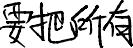 要把所有